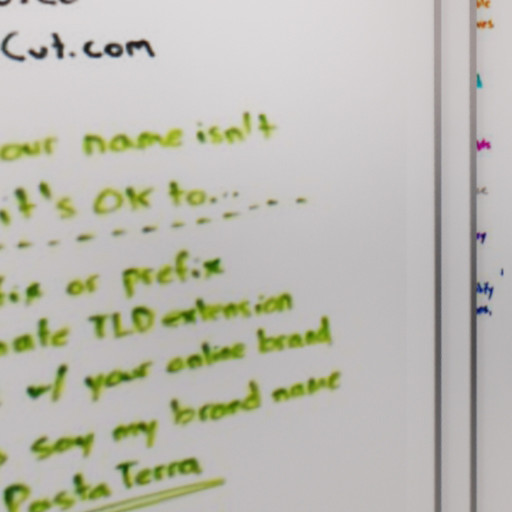 Cut.com
our name isn't
it's OK to...
fix or prefix
nate TLD extension
w/ your online brand
say my brand name
Pasta Terra